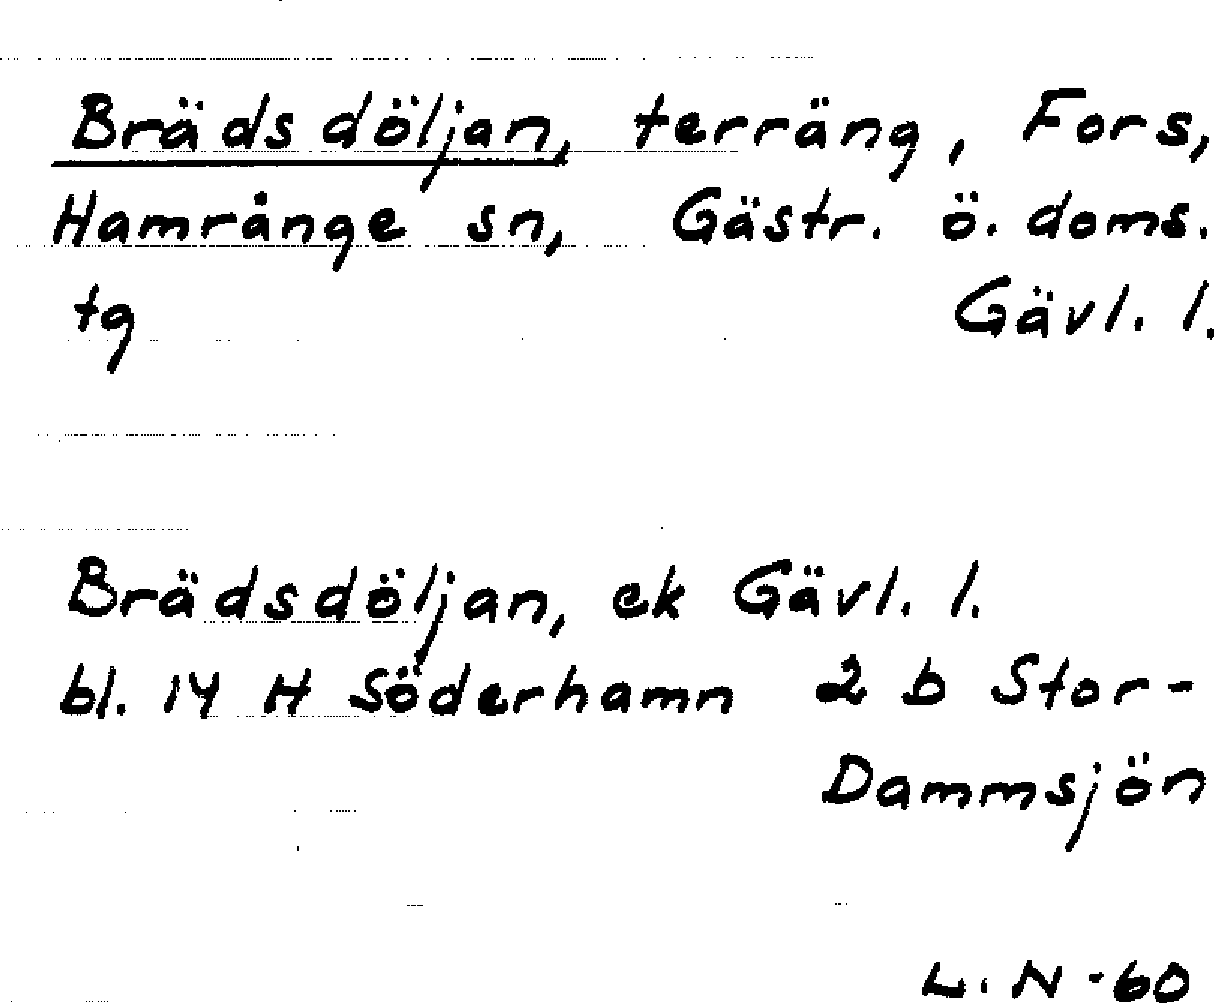 Brädsdöljan, terräng, Fors,
Hamrånge sn, Gästr. ö. doms.
tg Gävl. l.
Brädsdöljan, ek Gävl. l.
bl. 14 H Söderhamn 2 b Stor-
Dammsjön
L. N -60